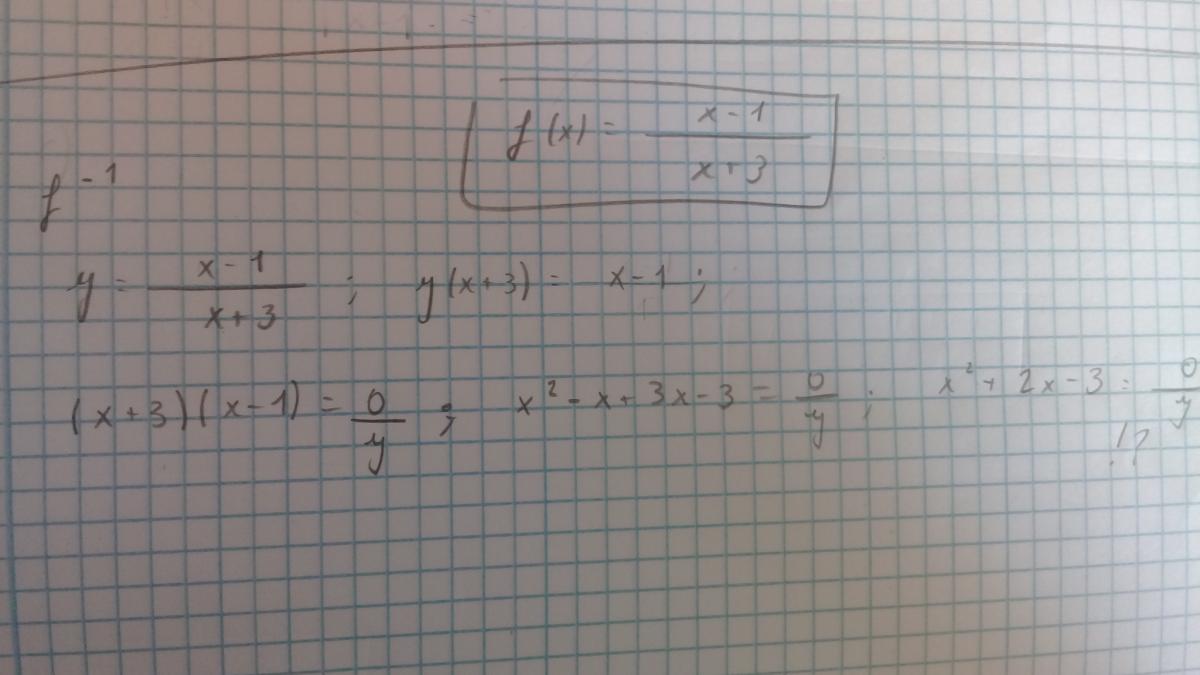 f(x) = x-1 / x+3
f^-1
y = x-1 / x+3 ; y(x+3) = x-1 ;
(x+3)(x-1) = 0/y ; x^2 - x + 3x - 3 = 0/y ; x^2 + 2x - 3 = 0/y
!?